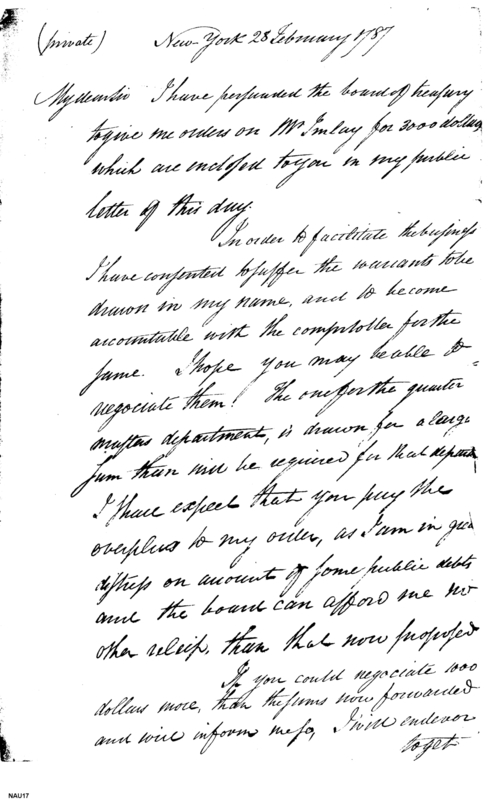 (private) New-York 28 February 1787
My dear sir I have persuaded the board of treasury
to give me orders on Mr Imlay for 3000 dollars
which are enclosed to you in my public
letter of this day.
In order to facilitate the business
I have consented to suffer the warrants to be
drawn in my name, and to become
accountable with the comptroller for the
same. I hope you may be able to
negociate them. The one for the quarter
masters department, is drawn for a large
sum than will be required for that
I shall expect that you pay the
overplus to my order, as I am in great
distress on amount of some public debts
and the board can afford me no
other releif, than that now proposed
If you could negociate 1000
dollars more, than the sums now forwarded
and will inform me so, I will endevor
to get
NAU17